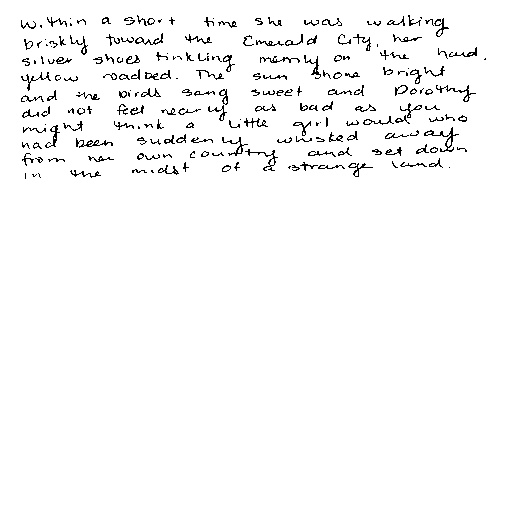 Within a short time she was walking
briskly toward the Emerald City, her
silver shoes tinkling merrily on the hard,
yellow roadbed. The sun shone bright
and the birds sang sweet and Dorothy
did not feel nearly as bad as you
might think a little girl would who
had been suddenly whisked away
from her own country and set down
in the midst of a strange land.